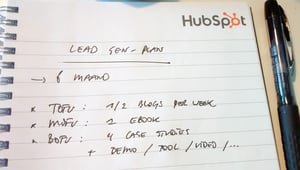 HubSpot
LEAD GEN-PLAN
→ 6 MAAND
* TOFU : 1/2 BLOGS PER WEEK
* MOFU : 1 EBOOK
* BOFU : 4 CASE STUDIES
+ DEMO / TOOL / VIDEO / ...